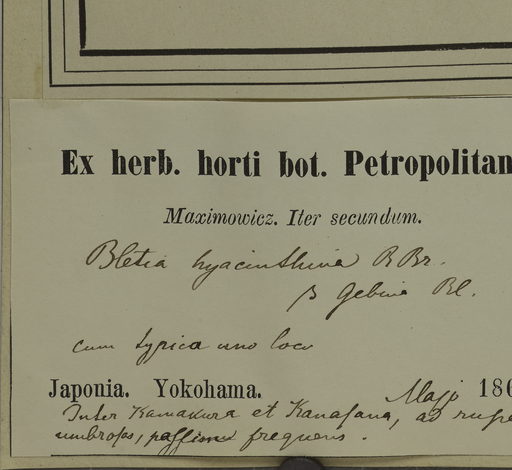 Ex herb. horti bot. Petropolitan
Maximowicz. Iter secundum.
Bletia hyacinthina R Br.
β Gebina Bl.
cum typica uno loco
Japonia. Yokohama. Majo 186
Inter Kamakura et Kanasana, ad rupe
umbrosas, passim frequens.